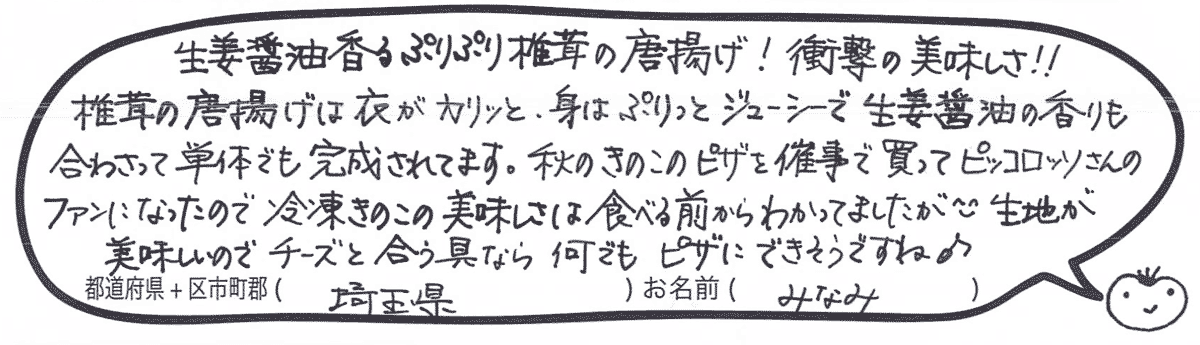 生姜醤油香るぷりぷり椎茸の唐揚げ！衝撃の美味しさ!!
椎茸の唐揚げは衣がカリッと、身はぷりっとジューシーで生姜醤油の香りも
合わさって単体でも完成されてます。秋のきのこのピザを催事で買ってピッコロッソさんの
ファンになったので冷凍きのこの美味しさは食べる前からわかってましたが 生地が
美味しいのでチーズと合う具なら何でもピザにできそうですね♪
都道府県＋区市町郡(埼玉県)お名前(みなみ)